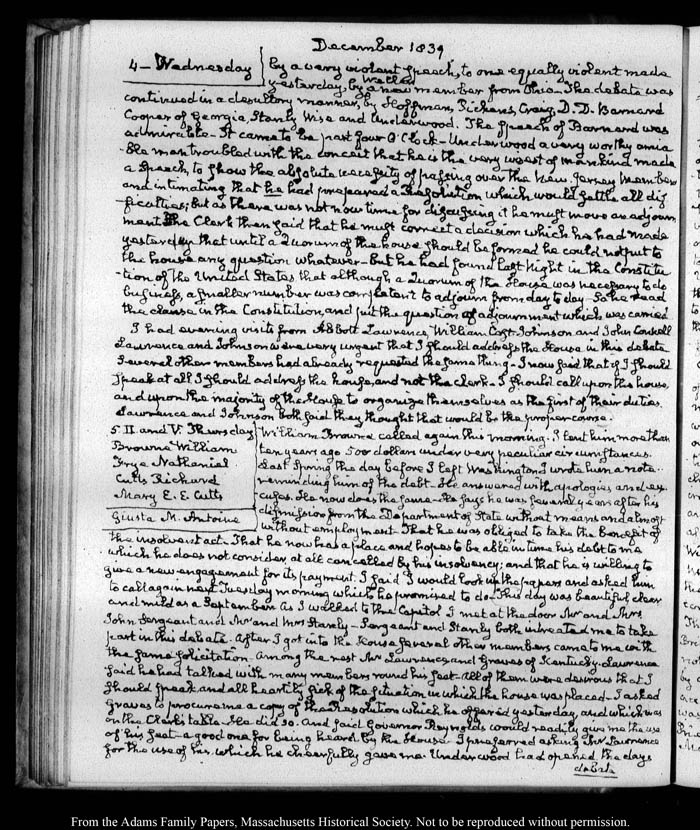 December 1839
4 - Wednesday
by a very violent speech, to one equally violent made
Weller
yesterday, by a new member from Ohio - The debate was
continued in a desultory manner, by Hoffman, Pickens, Craig, D. D. Barnard
Cooper of Georgia, Stanly Wise and Underwood. The Speech of Barnard was
admirable - It came to be past four O'Clock - Underwood a very worthy amia
-ble man troubled with the conceit that he is the very worst of mankind made
a Speech, to show the absolute necessity of passing over the New Jersey members
and intimating that he had prepared a Resolution which would settle all dif
-ficulties; but as there was not now time for discussing it he must move an adjourn
ment. The Clerk then said that he must correct a decision which he had made
yesterday that until a Quorum of the house should be formed he could not put to
the house any question whatever - but he had found last Night in the Constitu
-tion of the United States that although a Quorum of the House was necessary to do
business, a smaller number was competent to adjourn from day to day - So he read
the clause in the Constitution, and put the question of adjournment which was carried
I had evening visits from Abbott Lawrence William Cost Johnson and John Carroll
Lawrence and Johnson were very urgent that I should address the House in this debate
Several other members had already requested the same thing - I now said that if I should
speak at all I should address the house, and not the Clerk - I should call upon the house
and upon the majority of the House to organize themselves as the first of their duties
Lawrence and Johnson both said they thought that would be the proper course.
5. II. and V. Thursday
Browne William
Frye Nathaniel
Cutts Richard
Mary E. E. Cutts
Giusta M. Antoine
William Browne called again this morning. I lent him more than
ten years ago 500 dollars under very peculiar circumstances.
Last Spring the day before I left Washington I wrote him a note
reminding him of the debt. He answered with apologies and ex
cuses. He now does the same - He says he was several years after his
dismission from the Department of State without means and almost
without employment - That he was obliged to take the benefit of
the insolvent act - That he now has a place and hopes to be able in time his debt to me
which he does not consider at all cancelled by his insolvency; and that he is willing to
give a new engagement for its payment. I said I would look up the papers and asked him
to call again next Tuesday morning which he promised to do - This day was beautiful clear
and mild as a September. As I walked to the Capitol I met at the door Mr and Mrs
John Sergeant and Mr and Mrs Stanly - Sergeant and Stanly both intreated me to take
part in this debate. After I got into the House several other members came to me with
the same solicitation. Among the rest Mr Lawrence and Graves of Kentucky. Lawrence
said he had talked with many members round his seat - All of them were desirous that I
should speak and all heartily sick of the situation in which the house was placed - I asked
Graves to procure me a copy of the Resolution which he offered yesterday, and which was
on the Clerk's table - He did so. And said Governor Reynolds would readily give me the use
of his seat - a good one for being heard by the House. I preferred asking Mr Lawrence
for the use of his, which he cheerfully gave me. Underwood had opened the days
debate
From the Adams Family Papers, Massachusetts Historical Society. Not to be reproduced without permission.